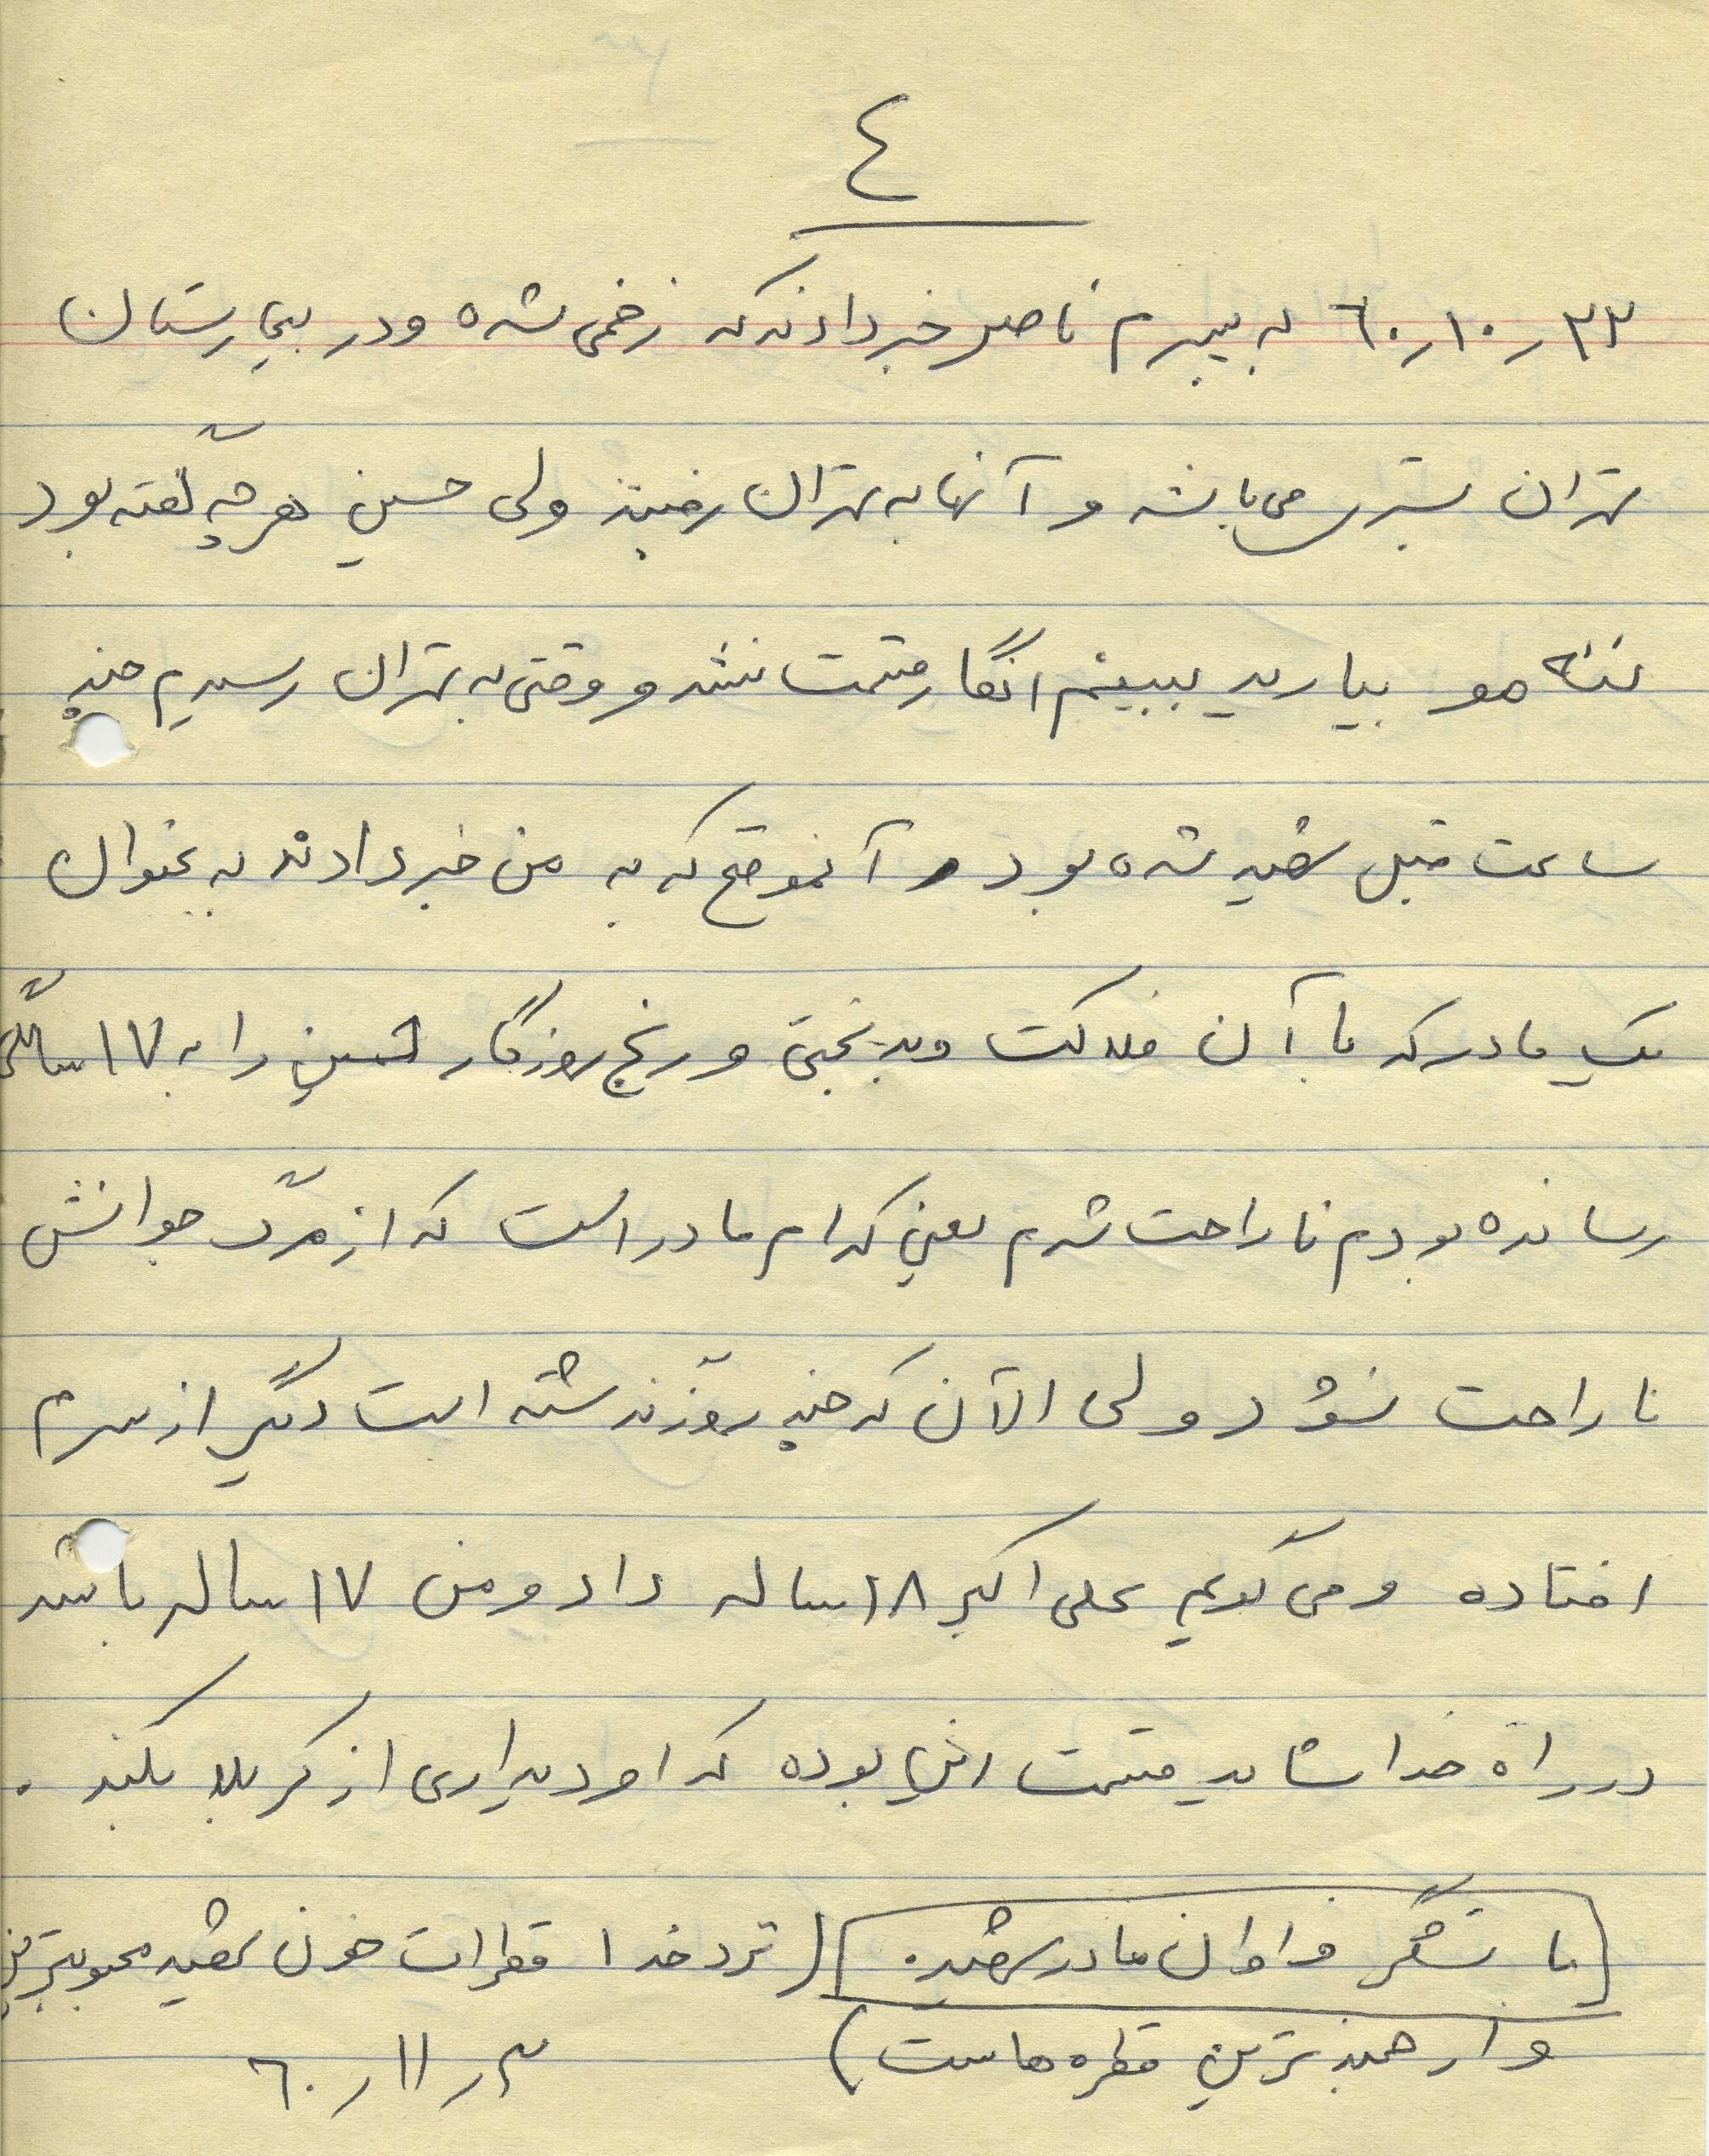 ٤
۲۳ر۱۰ر٦۰ به پسرم ناصر خبر دادند که زخمی شده و در بیمارستان
تهران بستری می‌باشد و آنها به تهران رفتند ولی حسین هر چه گفته بود
ننه مو بیارید ببینم انگار قسمت نشد و وقتی به تهران رسیدیم چند
ساعت قبل شهید شده بود و آنموقع که به من خبر دادند به عنوان
یک مادر که با آن فلاکت و بدبختی و رنج روزگار حسین را به ۱۷ سالگی
رسانده بودم ناراحت شدم یعنی کدام مادر است که از مرگ جوانش
ناراحت نشود ولی الآن که چند روز گذشته است دیگر از سرم
افتاده و می گویم علی اکبر ۱۸ ساله داد و من ۱۷ ساله باشد
در راه خدا شاید قسمت این بوده که او دیداری از کربلا بکند .
با تشکر فراوان مادر شهید. (نزد خدا قطرات خون شهید محبوبترین
و ارجمندترین قطره هاست)
۳ر۱۱ر٦۰